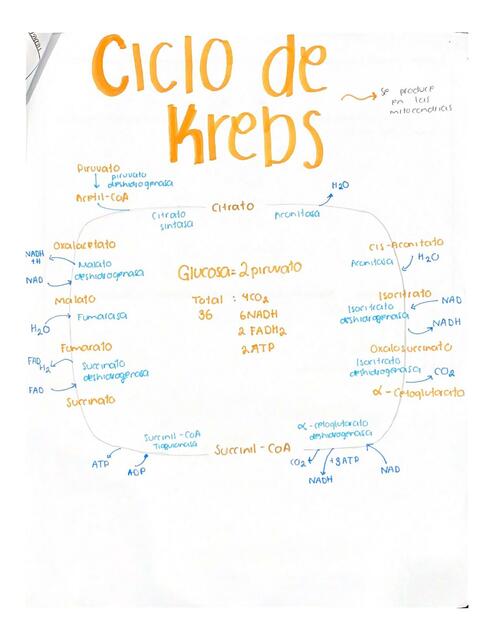 Ciclo de
Krebs
Se produce
en las
mitocondrias
Piruvato
piruvato
deshidrogenasa
Acetil-CoA
Citrato
sintasa
Citrato
Aconitasa
H2O
Oxalacetato
NADH
+H
Malato
deshidrogenasa
NAD
Malato
H2O
Fumarasa
Fumarato
FADH2
Succinato
deshidrogenasa
FAD
Succinato
Glucosa = 2 piruvato
Total : 4CO2
36 6NADH
2 FADH2
2ATP
Cis-Aconitato
Aconitasa
H2O
Isocitrato
NAD
Isocitrato
deshidrogenasa
NADH
Oxalosuccinato
Isocitrato
deshidrogenasa
CO2
α-Cetoglutarato
Succinil-CoA
ATP
ADP
Succinil-CoA
α-cetoglutarato
deshidrogenasa
CO2
NADH
NAD